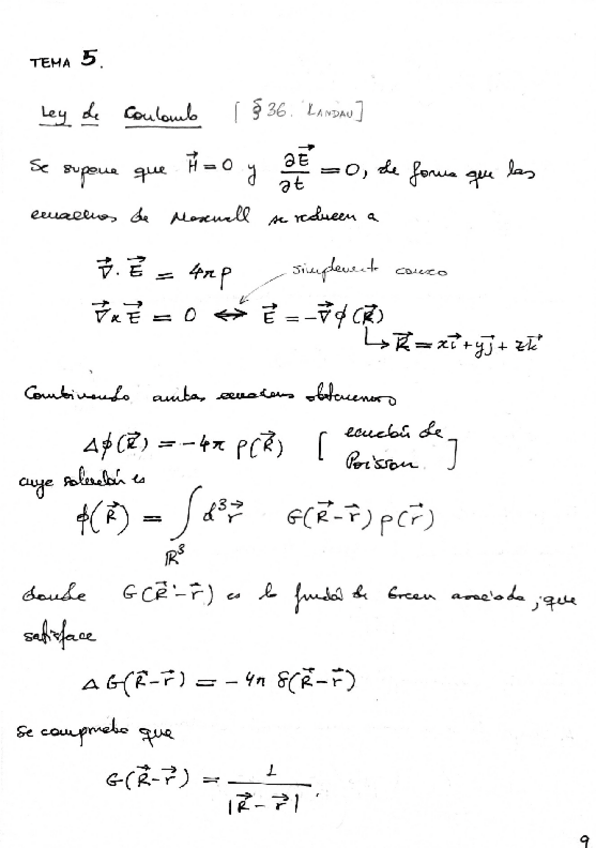 TEMA 5.
Ley de Coulomb [§36. LANDAU]
Se supone que H⃗ = 0 y ∂E⃗/∂t = 0, de forma que las
ecuaciones de Maxwell se reducen a
∇⃗·E⃗ = 4πρ simplemente conexo
∇⃗×E⃗ = 0 ⟺ E⃗ = -∇⃗ϕ(R⃗)
↳ R⃗ = xi⃗ + yj⃗ + zk⃗
Combinando ambas ecuaciones obtenemos
Δϕ(R⃗) = -4π ρ(R⃗) [ecuación de
Poisson]
cuya solución es
ϕ(R⃗) = ∫_{ℝ³} d³r⃗ G(R⃗-r⃗) ρ(r⃗)
donde G(R⃗-r⃗) es la función de Green asociada, que
satisface
ΔG(R⃗-r⃗) = -4π δ(R⃗-r⃗)
Se comprueba que
G(R⃗-r⃗) = 1/|R⃗-r⃗|.
9